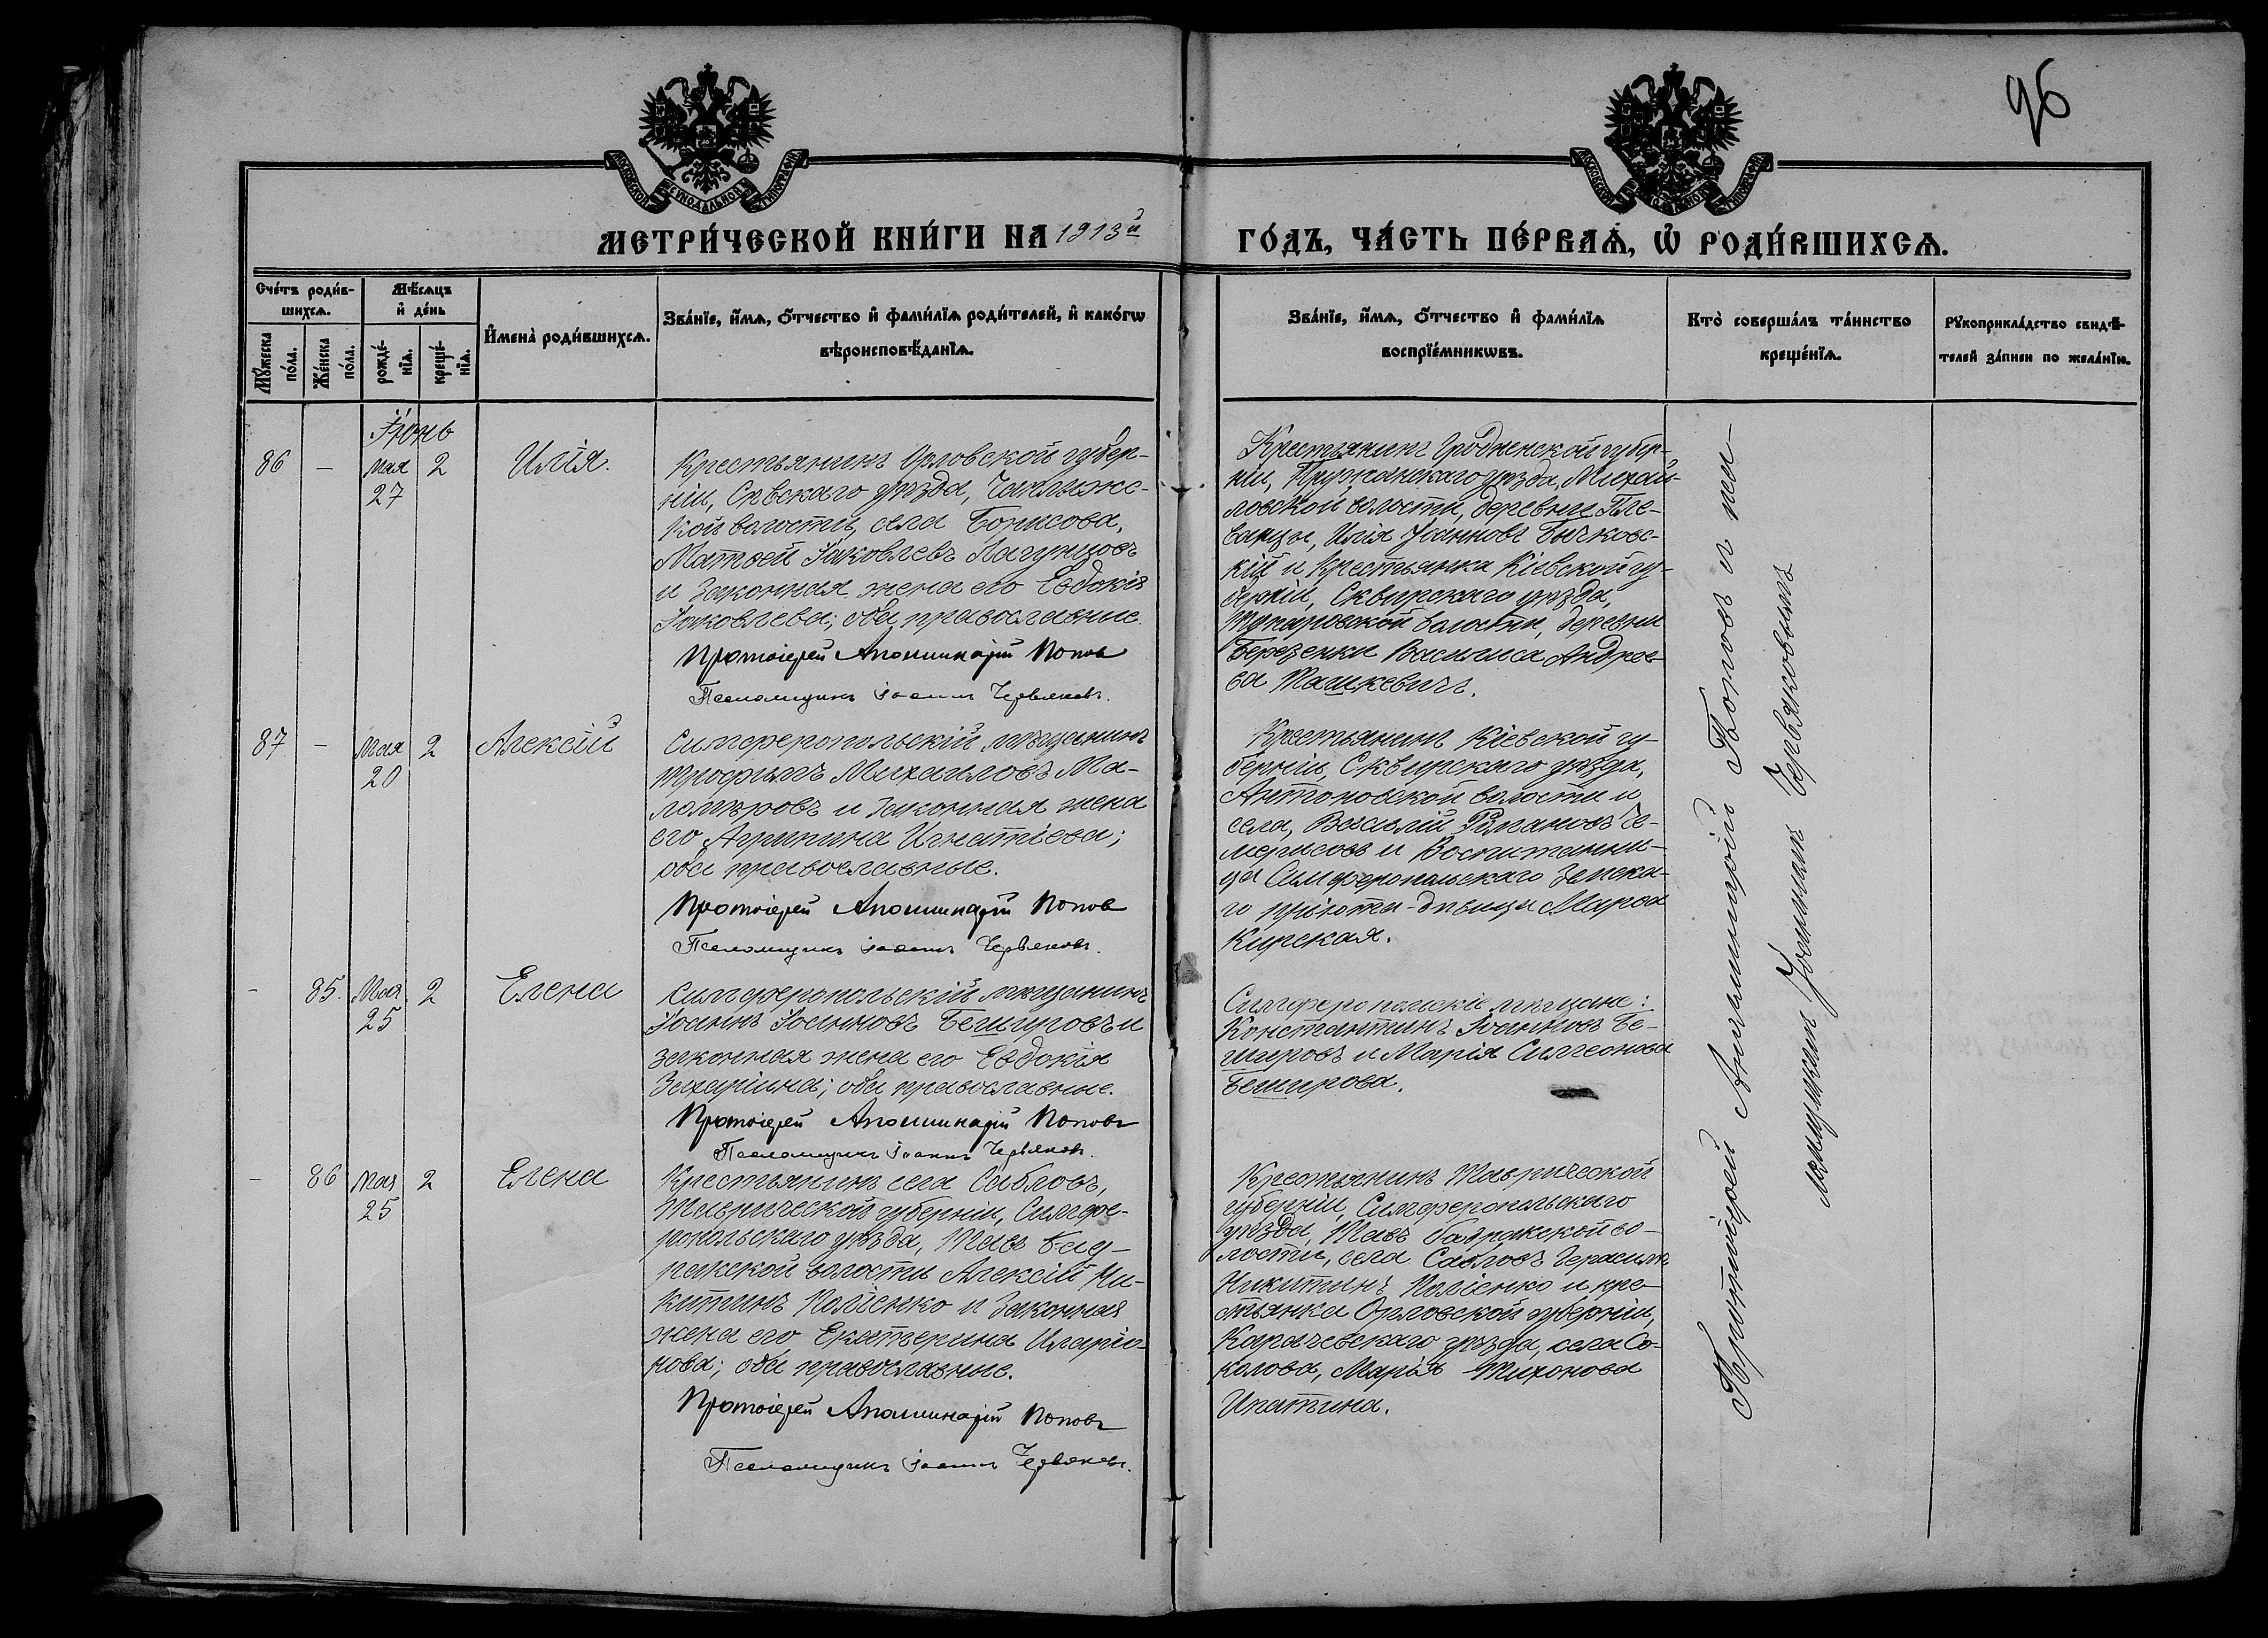 96
МОСКОВСКОЙ СѴНОДАЛЬНОЙ ТИПОГРАФІИ
МОСКОВСКОЙ СѴНОДАЛЬНОЙ ТИПОГРАФІИ
МЕТРИ́ЧЕСКОЙ КНИ́ГИ НА 1913й ГО́ДЪ, ЧА́СТЬ ПЕ́РВАѦ, Ѡ РОДИ́ВШИХСѦ.
Сче́тъ роди́в-
шихсѧ.
Мꙋ́жеска по́ла.
Же́нска по́ла.
Мѣ́сѧцъ
и҆ де́нь
рожде́-
нїѧ.
креще́-
нїѧ.
И҆мена̀ роди́вшихсѧ.
Зва́нїе, и҆́мѧ, ѻ҆́тчество и҆ фами́лїѧ роди́телей, и҆ како́гѡ
вѣроисповѣ́данїѧ.
Зва́нїе, и҆́мѧ, ѻ҆́тчество и҆ фами́лїѧ
воспрїе́мникѡвъ.
Кто̀ соверша́лъ та́инство
креще́нїѧ.
Рꙋкоприкла́дство свидѣ́-
телей за́писи по жела́нїю.
Іюнь
86 – мая 2 Илія.
27
Крестьянинъ Орловской губер-
ніи, Сѣвскаго уѣзда,
кой волости, села Борисова,
Матѳей Іаковлевъ Лагунцовъ
и законная жена его Евдокія
Іаковлева; оба православные.
Протоіерей Аполлинарій Попов
Псаломщикъ Іоаннъ Червяковъ.
Крестьянинъ Гродненской губер-
ніи, Пружанскаго уѣзда, Михай-
ловской волости, деревни Пле-
ванцы, Илія Іоанновъ Бычковс-
кій и крестьянка Кіевской гу-
берніи, Сквирскаго уѣзда,
волости, деревни
Березенки Василиса Андрее-
ва Ташкевичъ.
87 – Мая 2 Алексій
20
Симферопольскій мѣщанинъ
Трофимъ Михаиловъ Ма-
ломѣровъ и законная жена
его Агрипина Игнатіева;
оба православные.
Протоіерей Аполлинарій Попов
Псаломщикъ Іоаннъ Червяковъ.
Крестьянинъ Кіевской гу-
берніи, Сквирскаго уѣзда,
Антоновской волости и
села, Василій Романовъ Че-
мерисовъ и Воспитанни-
ца Симферопольскаго Земска-
го пріюта – дѣвица
Кирская.
– 85. Мая 2 Елена
25
Симферопольскій мѣщанинъ
Іоаннъ Іоанновъ Бешировъ и
законная жена его Евдокія
Захаріина; оба православные.
Протоіерей Аполлинарій Поповъ
Псаломщикъ Іоаннъ Червяковъ.
Симферопольскіе мѣщане:
Константинъ Іоанновъ Бе-
шировъ и Марія Симеонова
Беширова.
– 86 Мая 2 Елена
25
Крестьянинъ села Сабловъ,
Таврической губерніи, Симфе-
ропольскаго уѣзда, Тавъ Бад-
ракской волости Алексій Ни-
китинъ Поліенко и законная
жена его Екатерина Иларіо-
нова; оба православные.
Протоіерей Аполлинарій Поповъ
Псаломщикъ Іоаннъ Червяковъ.
Крестьянинъ Таврической
губерніи, Симферопольскаго
уѣзда, Тавъ Бадракской во-
лости, села Сабловъ Герасимъ
Никитинъ Поліенко и кре-
стьянка Орловской губерніи,
Карачевскаго уѣзда, села Со-
колова, Марія Тихонова
Ипатина.
Протоіерей Аполлинарій Поповъ и пса-
ломщикъ Іоаннъ Червяковымъ